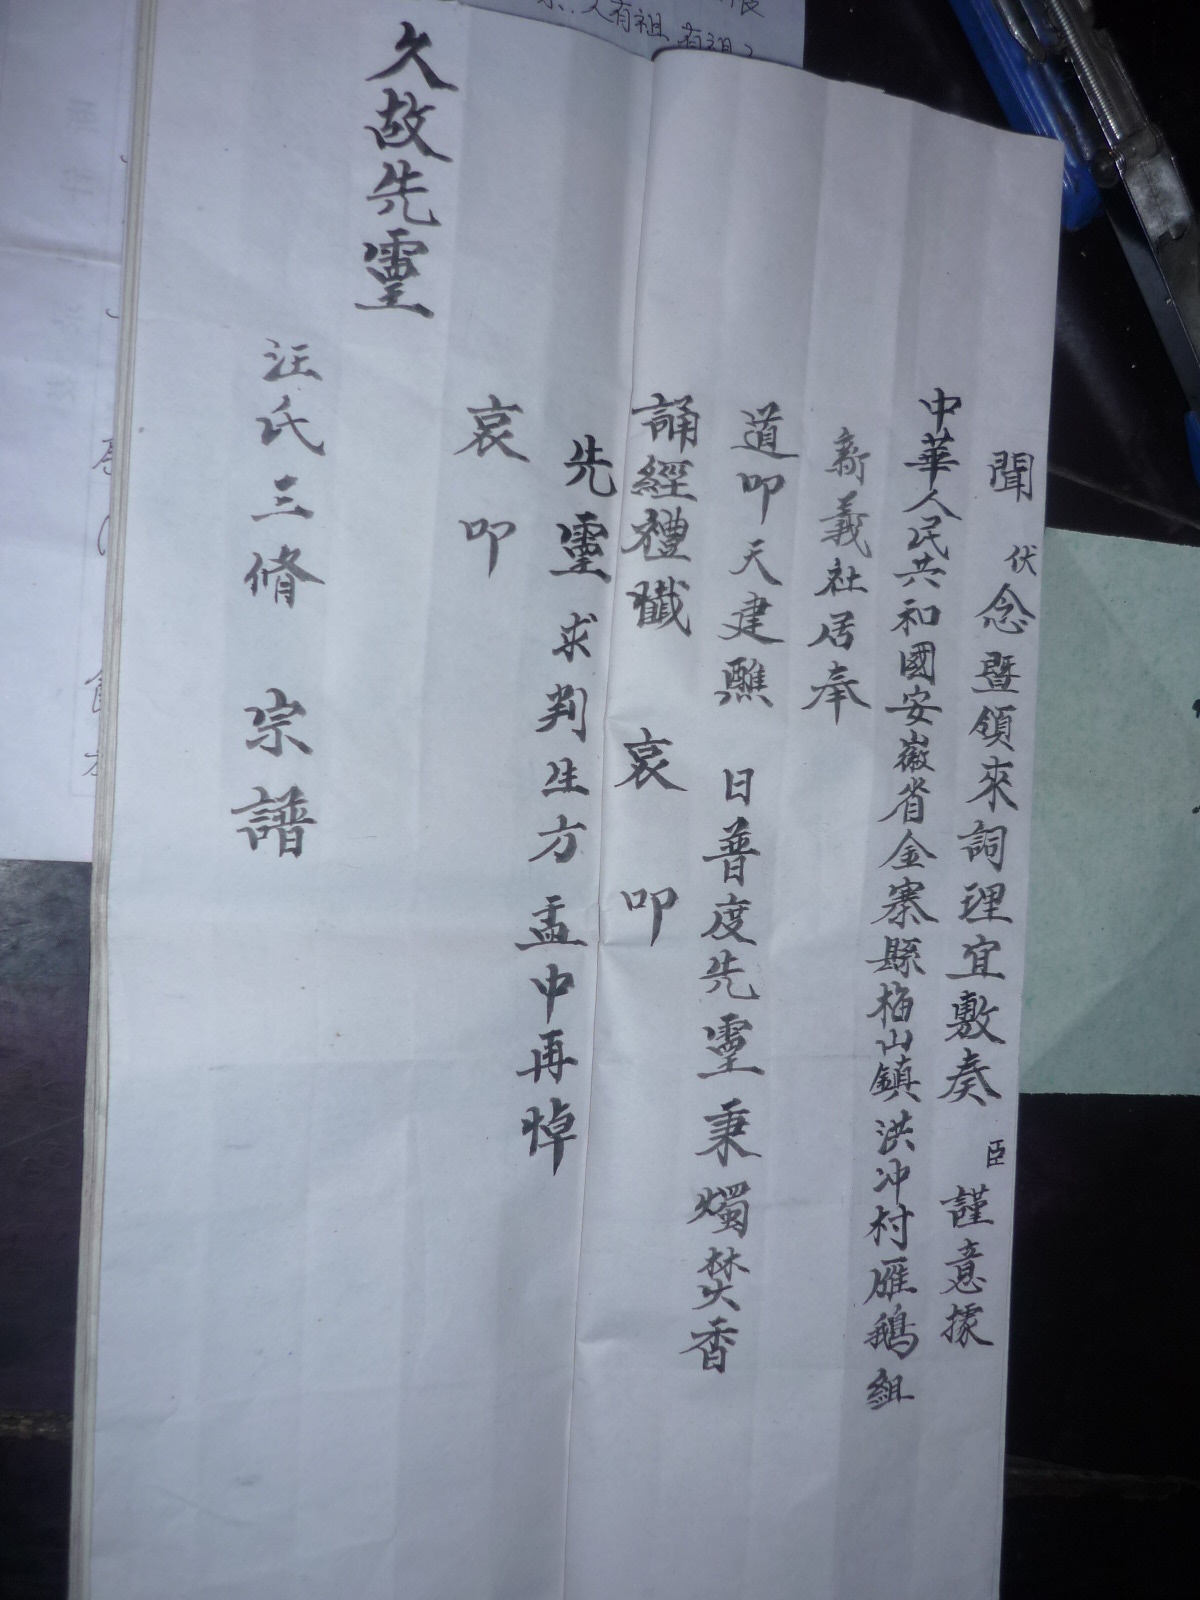 聞 伏念暨領來詞理宜敷奏 臣謹意據
中華人民共和國安徽省金寨縣梅山鎮洪冲村雁鵝組
新義社居奉
道叩天建醮 日普度先靈秉燭焚香
誦經禮懺 哀 叩
先靈求判生方盂中再悼
哀 叩
久故先靈
汪氏三脩 宗譜
人有祖